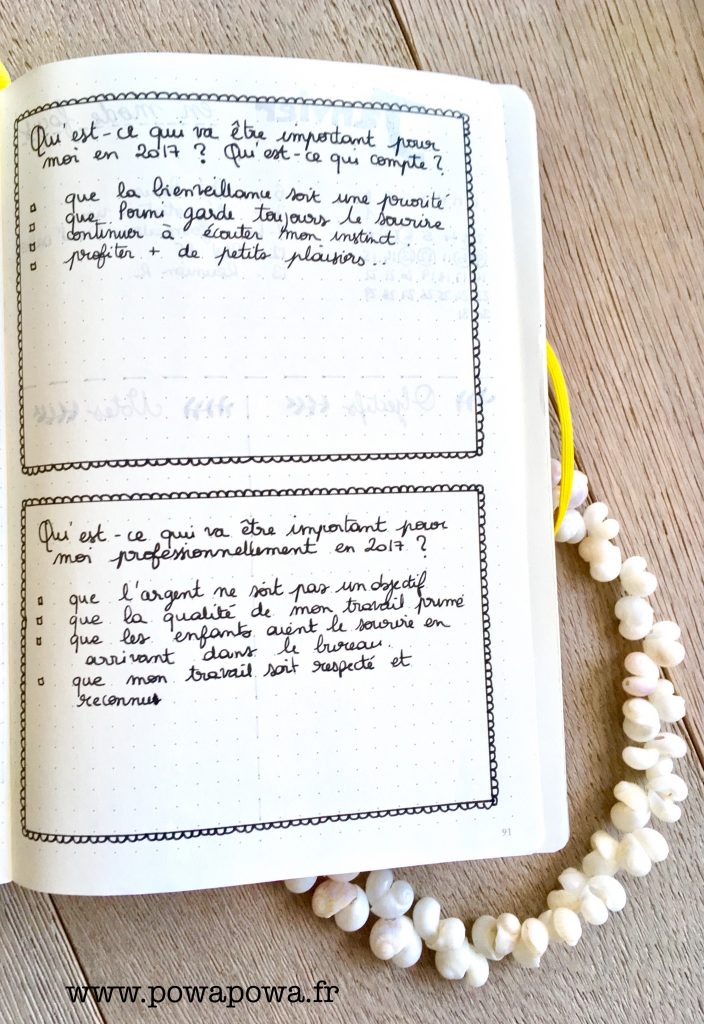 Qu'est-ce qui va être important pour
moi en 2017 ? Qu'est-ce qui compte ?
que la bienveillance soit une priorité
que Pormi garde toujours le sourire
continuer à écouter mon instinct
profiter + de petits plaisirs
Qu'est-ce qui va être important pour
moi professionnellement en 2017 ?
que l'argent ne soit pas un objectif
que la qualité de mon travail prime
que les enfants aient le sourire en
arrivant dans le bureau.
que mon travail soit respecté et
reconnu
91
www.powapowa.fr